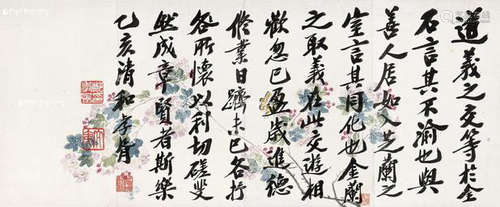 道義之交等於金
石言其不渝也與
善人居如入芝蘭之
室言其同化也金蘭
之取義在此交遊相
歡忽已歲進德
修業日躋未已各抒
所懷以利切磋斐
然成章賢者斯樂
乙亥清和孝胥